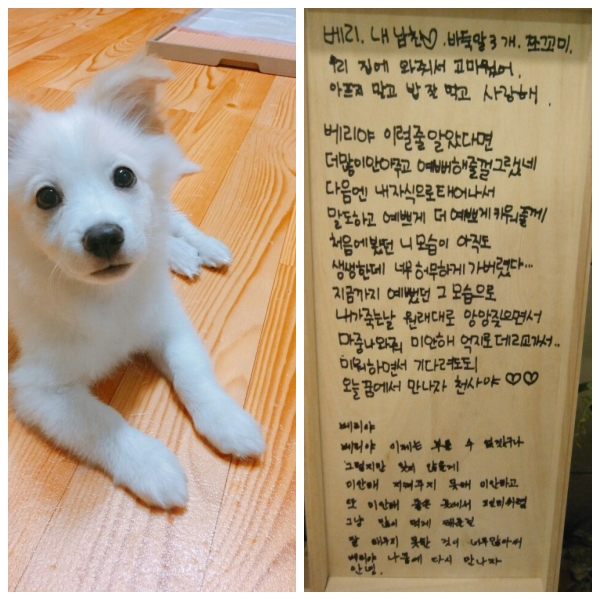 베리. 내 남친♡. 바둑알 3개. 쪼꼬미.
우리 집에 와줘서 고마웠어.
아프지 말고 밥 잘 먹고 사랑해.
베리야 이럴줄 알았다면
더많이 안아주고 예뻐해줄걸 그랬네
다음엔 내 자식으로 태어나서
말도하고 예쁘게 더 예쁘게 키워줄께
처음에 봤던 니 모습이 아직도
생생한데 너무 허무하게 가버렸다...
지금까지 예뻤던 그 모습으로
내가 죽는날 원래대로 앙앙 짖으면서
마중나와줘 미안해 억지로 데리고가서..
미워하면서 기다려도돼
오늘 꿈에서 만나자 천사야 ♡♡
베리야
베리야 이제는 부를 수 없겠구나
그렇지만 잊지 않을게
미안해 지켜주지 못해 미안하고
또 미안해 좋은 곳에서
그냥
잘 해주지 못한 것이 너무많아서
베리야 나중에 다시 만나자
안녕.